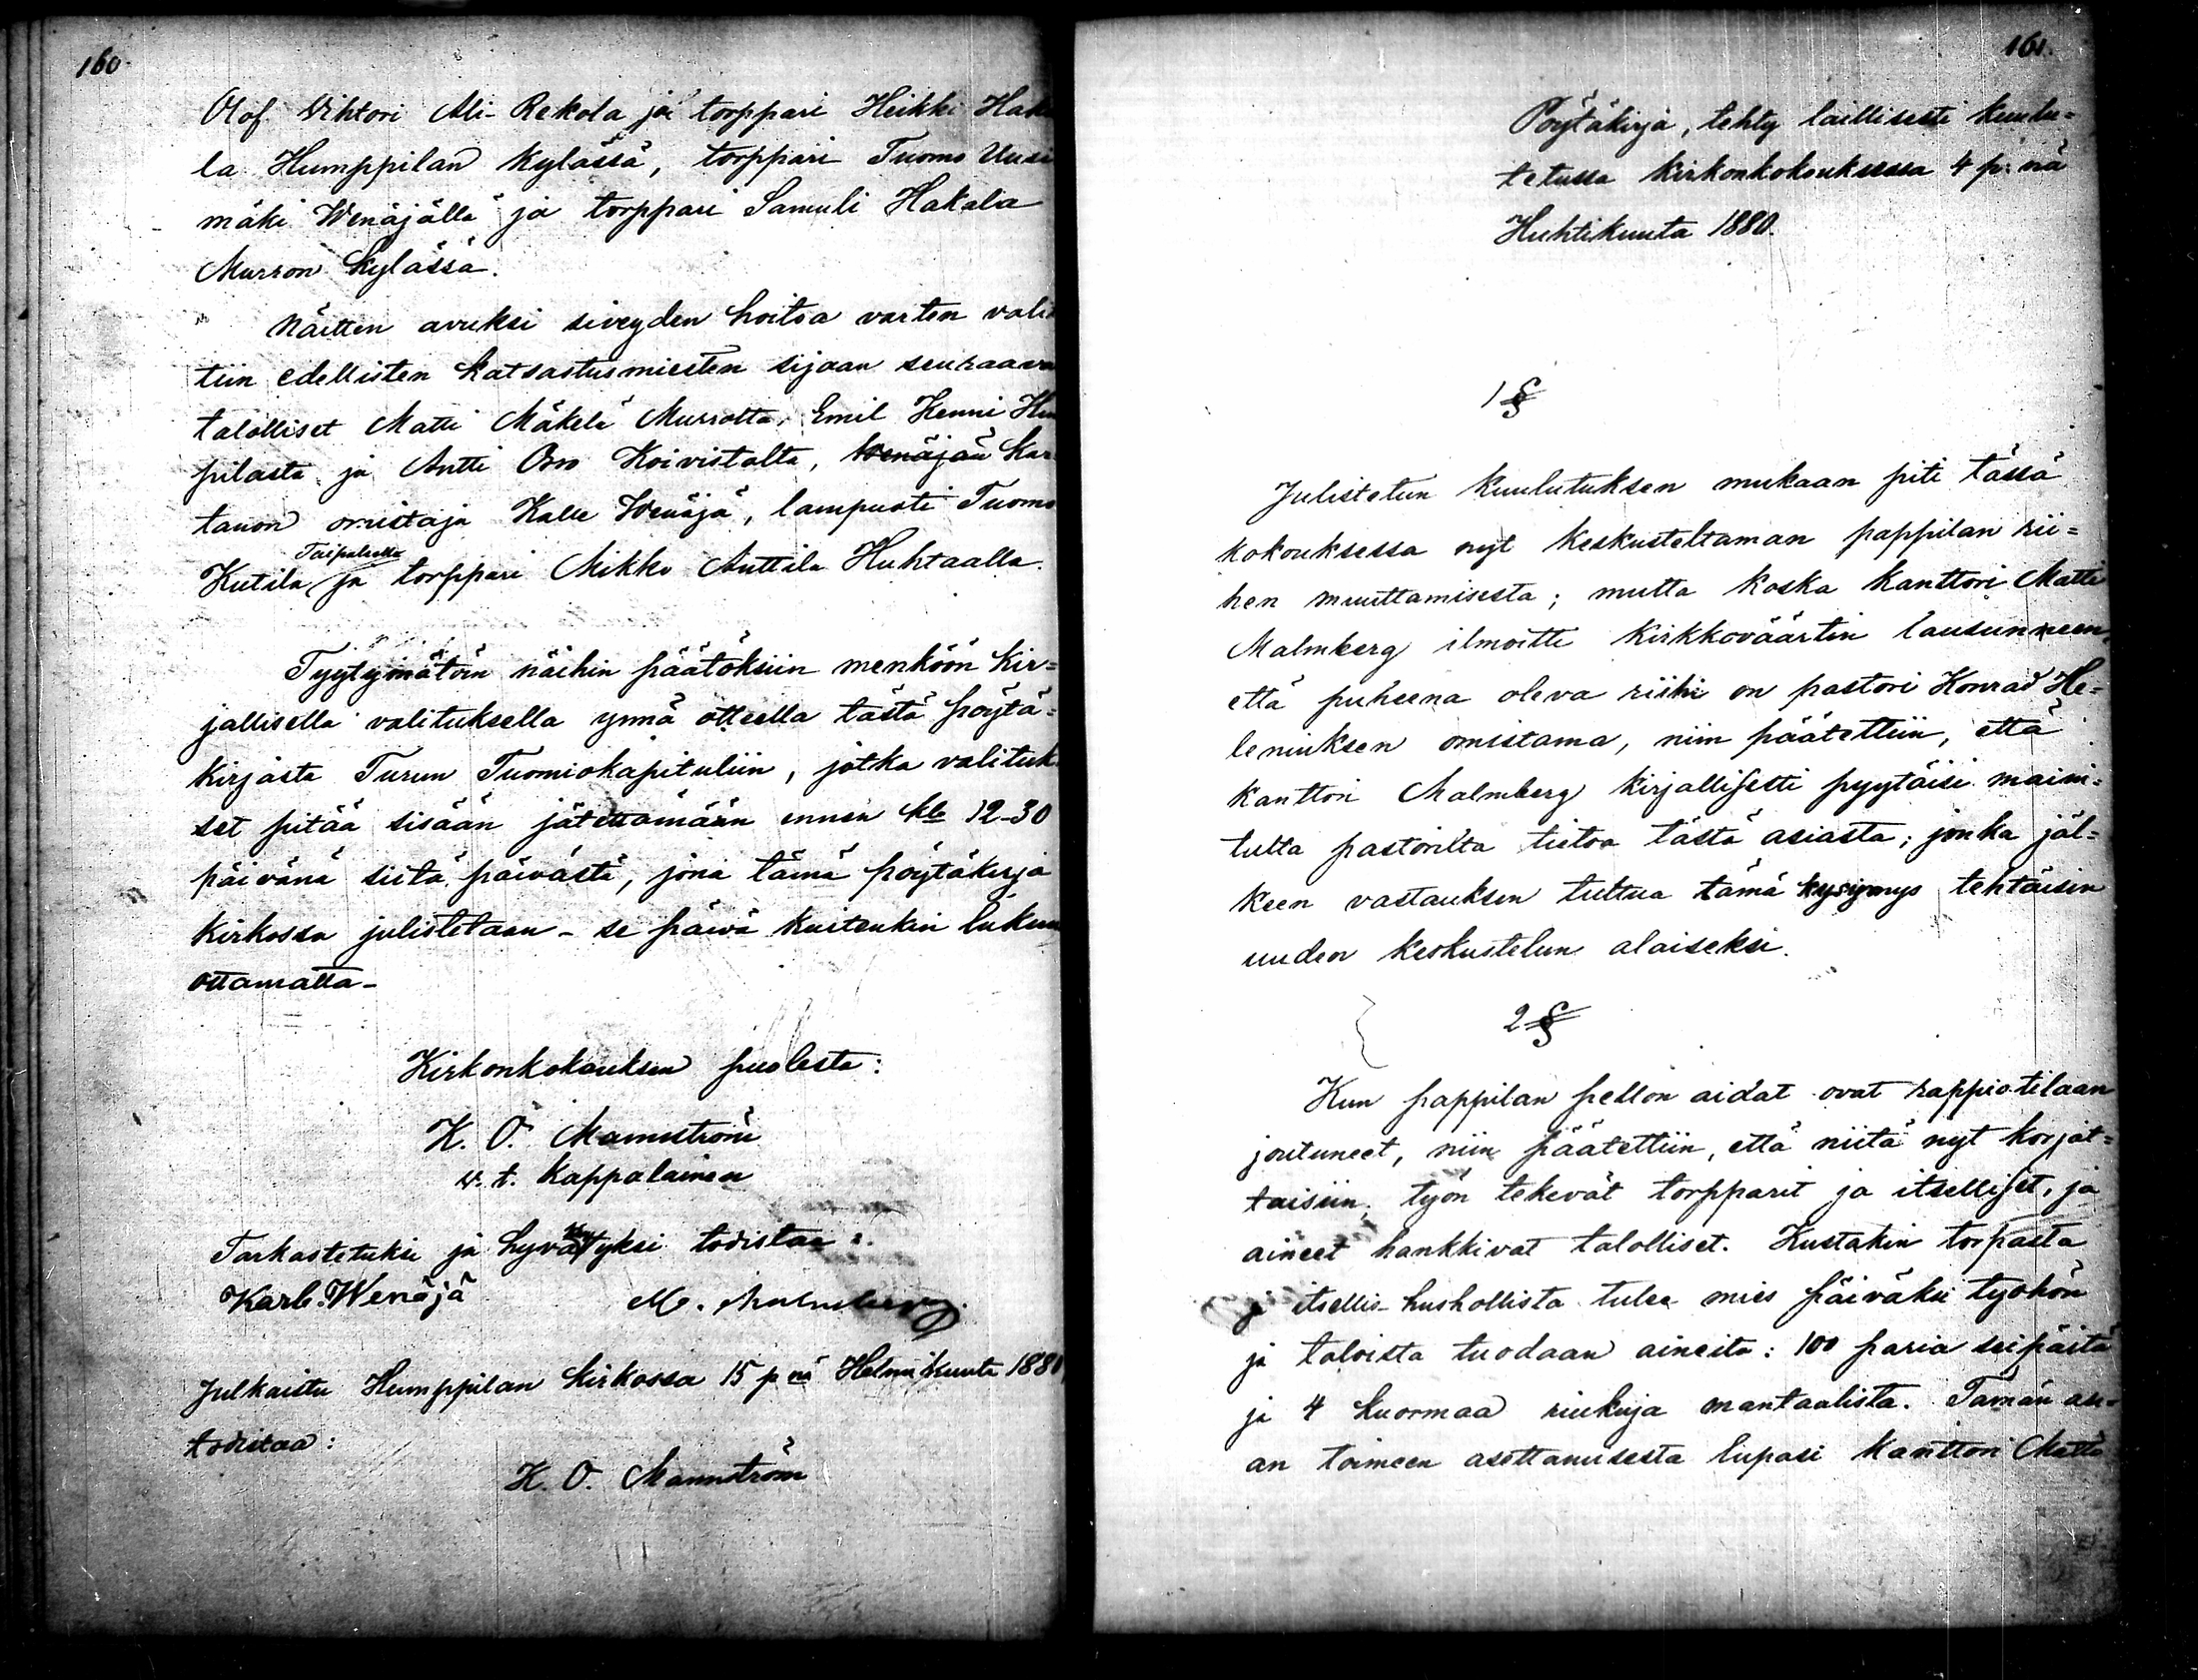 160.
Olof Vihtori Ali-Rekola ja torppari Heikki Haka
la Humppilan kylässä, torppari Tuomo Uusi
mäki Wenäjällä ja torppari Samuli Hakala
Murron kylässä.
Näitten avuksi siveyden hoitoa varten valit
tiin edellisten katsastusmiesten sijaan seuraava
talolliset Matti Mäkelä Murrolta, Emil Kenni Hum
pilasta ja Antti Oro Koivistolta, Wenäjän Kar
tanon omistaja Kalle Wenäjä, lampuoti Tuomo
Taipaleella
Kutila ja torppari Mikko Anttila Huhtaalla.
Tyytymätöin näihin päätöksiin menköön kir=
jallisella valituksella ynnä otteella tästä pöytä=
kirjasta Turun Tuomiokapituliin, jotka valituk
set pitää sisään jätettämään ennen klo 12-30
päivänä siitä päivästä, jona tämä pöytäkirja
kirkossa julistetaan - se päivä kuitenkin lukuun
ottamatta-
Kirkonkokouksen puolesta:
K. O. Mannström
v. t. Kappalainen
Tarkastetuksi ja hyväksytyksi todistaa:
Karl. Wenäjä M. Malmberg.
Julkaistu Humppilan kirkossa 15 p nä Helmikuuta 1880
todistaa:
K. O. Mannström
161.
Pöytäkirja, tehty laillisesti kuulu=
tetussa kirkonkokouksessa 4 p:nä
Huhtikuuta 1880.
1 §
Julistetun kuulutuksen mukaan piti tässä
kokouksessa nyt keskusteltaman pappilan rii=
hen muuttamisesta; mutta koska kanttori Matti
Malmberg ilmoitti kirkkoväärtin lausunneen,
että puheena oleva riihi on pastori Konrad He=
leniuksen omistama, niin päätettiin, että
kanttori Malmberg kirjallisesti pyytäisi maini=
tulta pastorilta tietoa tästä asiasta; jonka jäl=
keen vastauksen tultua tämä kysymys tehtäisiin
uuden keskustelun alaiseksi.
2 §
Kun pappilan pellon aidat ovat rappio-tilaan
joutuneet, niin päätettiin, että niitä nyt korjat=
taisiin; työn tekevät torpparit ja itselliset, ja
aineet hankkivat talolliset. Kustakin torpasta
ja itsellis-hushollista tulee mies päiväksi työhön
ja taloista tuodaan aineita: 100 paria seipäitä
ja 4 kuormaa riukuja mantaalista. Tämän asi=
an toimeen asettamisesta lupasi kanttori Matti